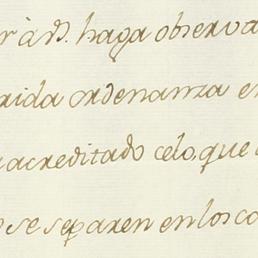 r à V. haga observa
rida ordenanza e
acreditado celo, que
se separen en los co